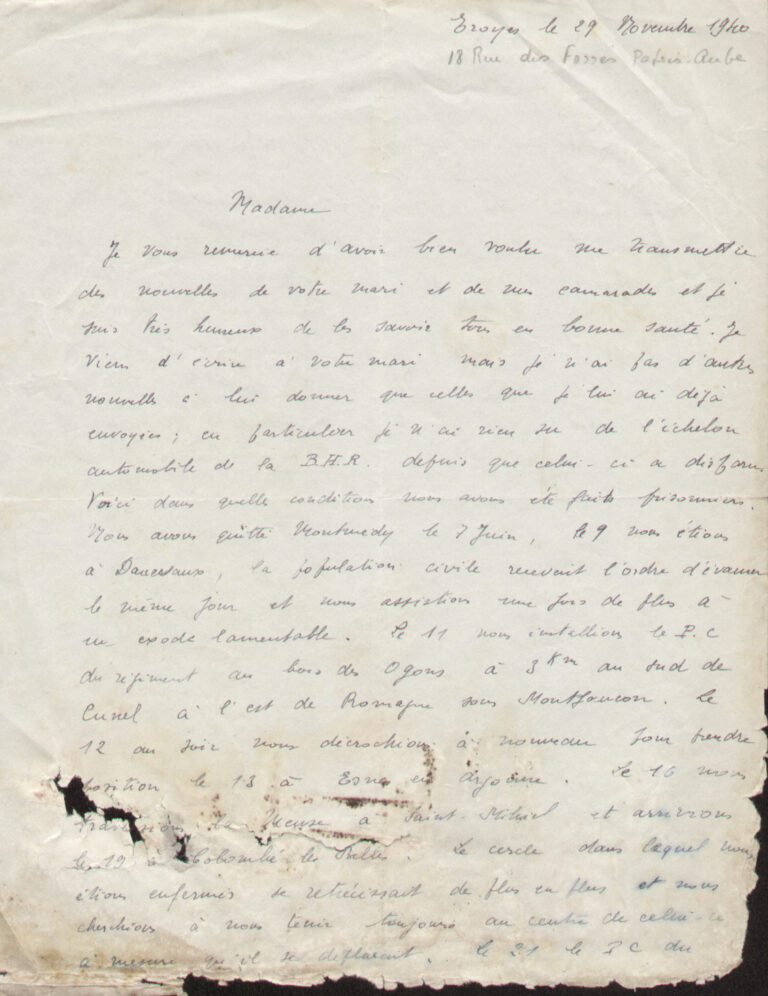 Troyes le 29 Novembre 1940
18 Rue des Fosses Patris. Aube
Madame
Je vous remercie d'avoir bien voulu me transmettre
des nouvelles de votre mari et de mes camarades et je
suis très heureux de les savoir tous en bonne santé. Je
viens d'écrire à votre mari mais je n'ai pas d'autres
nouvelles à lui donner que celles que je lui ai déjà
envoyées ; en particulier je n'ai rien su de l'échelon
automobile de la B.H.R. depuis que celui-ci a disparu
Voici dans quelle condition nous avons été faits prisonniers.
Nous avons quitté Montmedy le 7 Juin, le 9 nous étions
à , la population civile recevait l'ordre d'évacuer
le même jour et nous assistions une fois de plus à
un exode lamentable. Le 11 nous installions le P.C
du régiment au bois des Ogons à 3 Km au sud de
Cunel à l'est de Romagne sous Montfaucon. Le
12 au soir nous décrochions à nouveau pour prendre
position le 13 à Esnes en Argonne. Le 16 nous
traversions la Meuse à Saint-Mihiel et arrivions
le 19 à Colombé les Belles. Le cercle dans lequel nous
étions enfermés se retrécissait de plus en plus et nous
cherchions à nous tenir toujours au centre de celui-ci
à mesure qu'il se deplacait. Le 21 le P C du